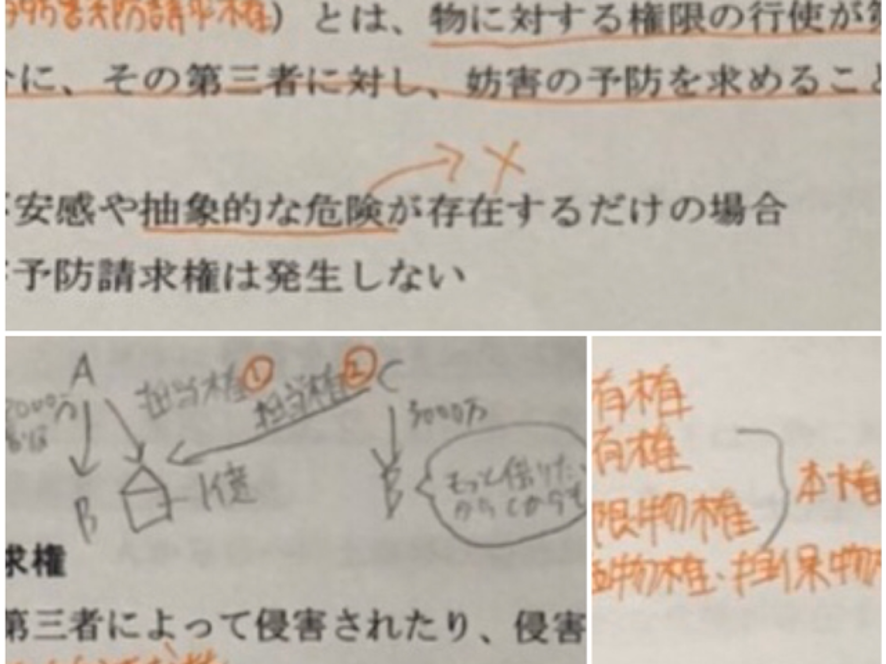 妨害予防請求権）とは、物に対する権限の行使が
に、その第三者に対し、妨害の予防を求めること
×
安感や抽象的な危険が存在するだけの場合
予防請求権は発生しない
A 担当権① 担当権② C
3000万
B 1億 B もっと借りたい
からCからも
求権
第三者によって侵害されたり、侵害
有権
有権
限物権 本権
物権・担保物